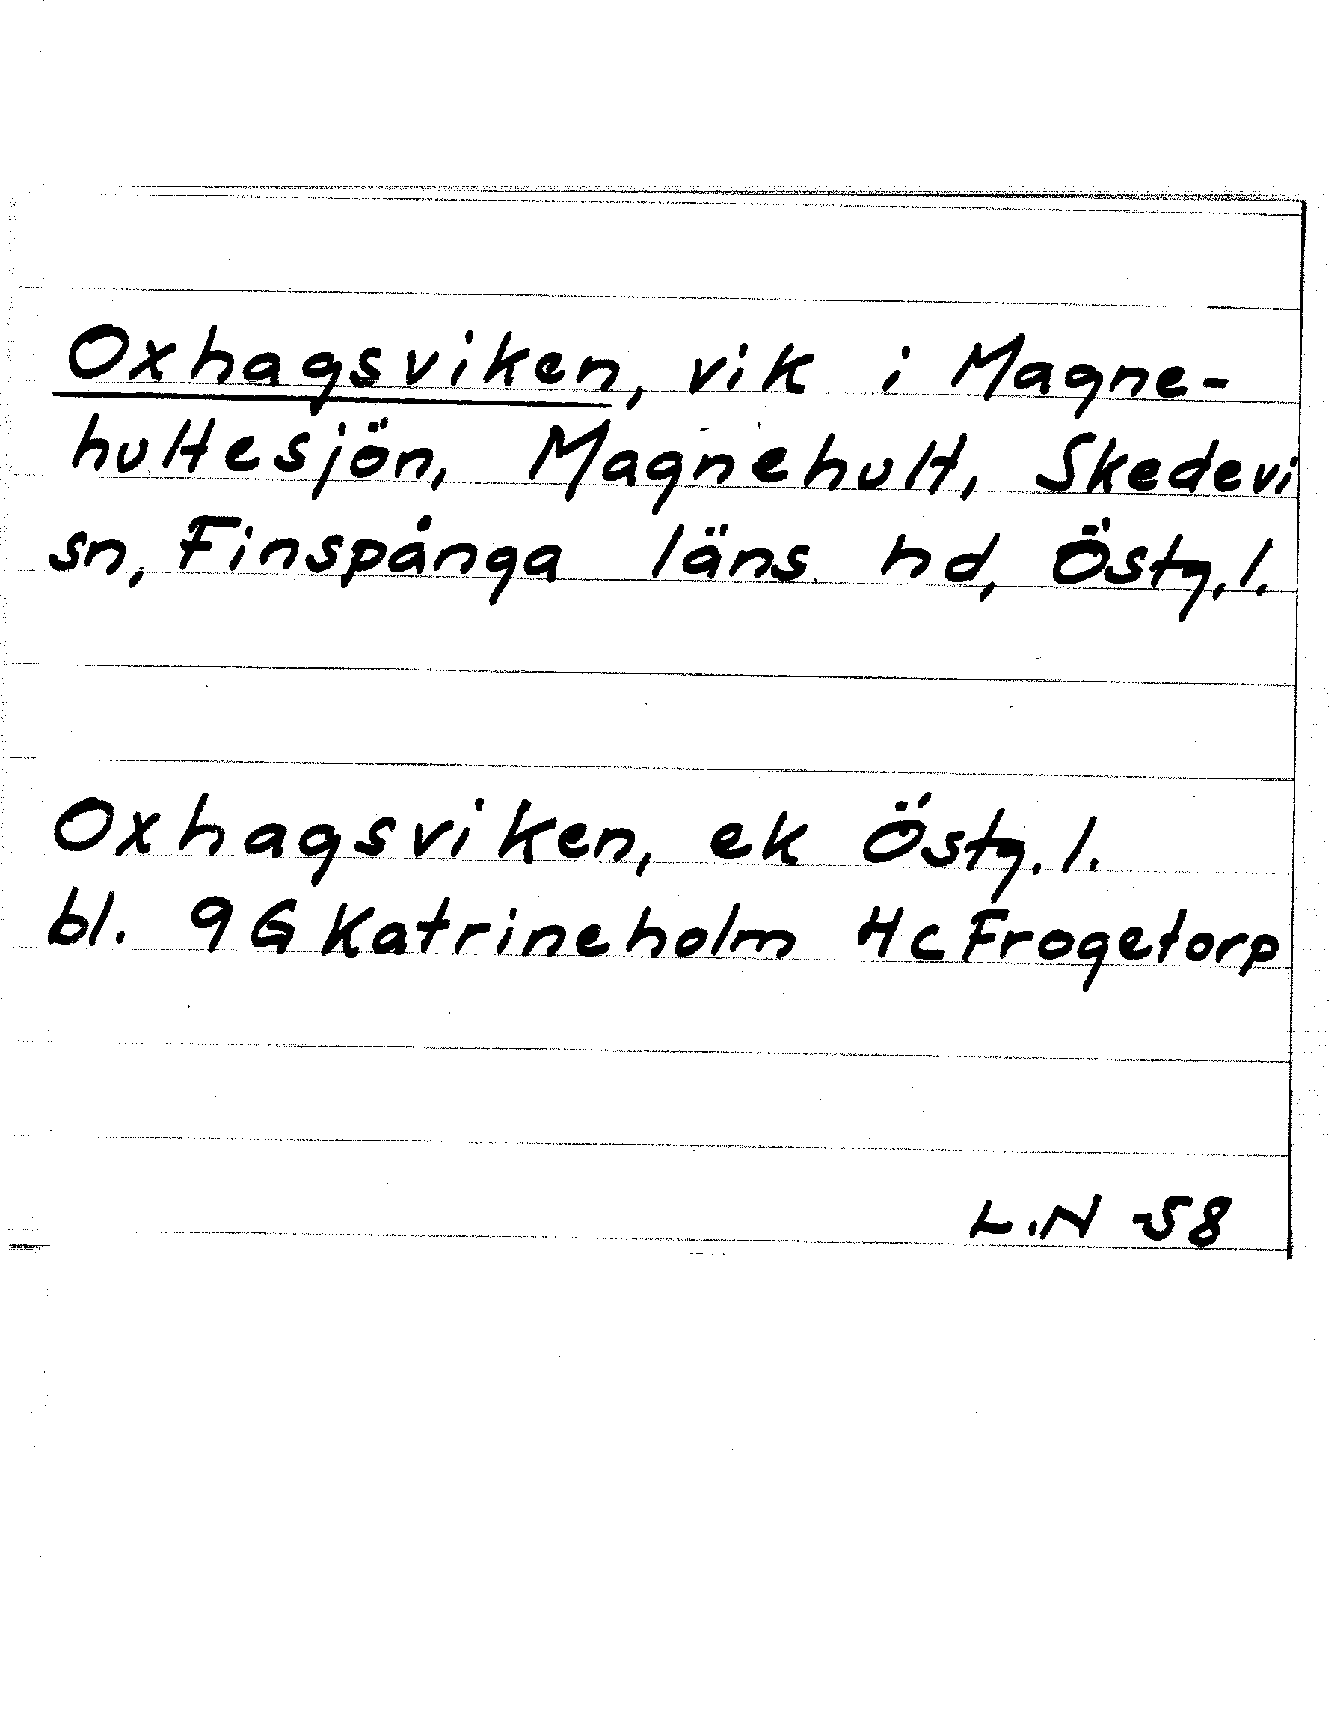 Oxhagsviken, vik i Magne-
hultesjön, Magnehult, Skedevi
sn, Finspånga läns hd, Östg. l.
Oxhagsviken, ek Östg. l.
bl. 9G Katrineholm Hc Frogetorp
L.N -58